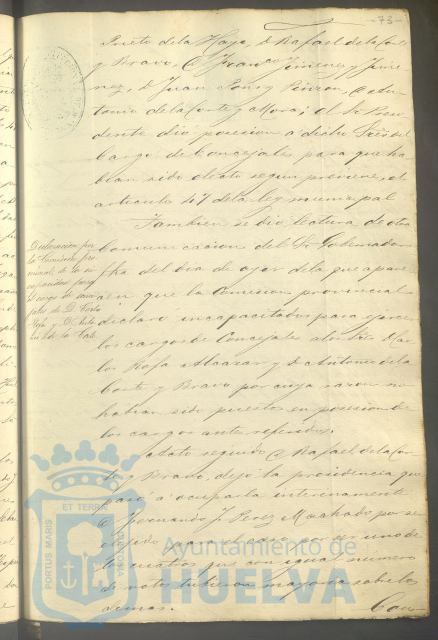 -73-
Prieto de la Haza, D. Rafael de la Corte
y Bravo, D. Juan Jimenez y Jime
nez, D. Juan Pons y D. An
tonio de la Corte y Mora; el Sr. Presi
dente dio posesion a dichos Sres. del
cargo de Concejales para que ha
bian sido electos segun previene el
articulo 47 de la ley municipal
Tambien se dio lectura de otra
comunicacion del Sr. Gobernador
fha del dia de ayer de la que apare
ce en que la Comision provincial
declaró incapacitados para ejercer
los cargos de Concejales a los Sres. D. Car
los Rofa Alcazar y D. Antonio de la
Corte y Bravo por cuya razon no
habian sido puestos en posesion de
los cargos ante referidos.
Declaracion por
la Comision pro
vincial de la in
capacidad para
el cargo de conce
jales de D. Carlos
Rofa y D. Anto
nio de la Corte
Acto seguido D. Rafael de la Cor
te y Bravo, dejó la presidencia que
pasó a ocuparla interinamente
D. Fernando J. Perez Machado por se
para el caso por ser uno de
los cuatro que con igual número
de votos tubieron mayoria sobre los
demas.
Con-
PORTUS MARIS ET TERRÆ CUSTODIA
Ayuntamiento de
HUELVA